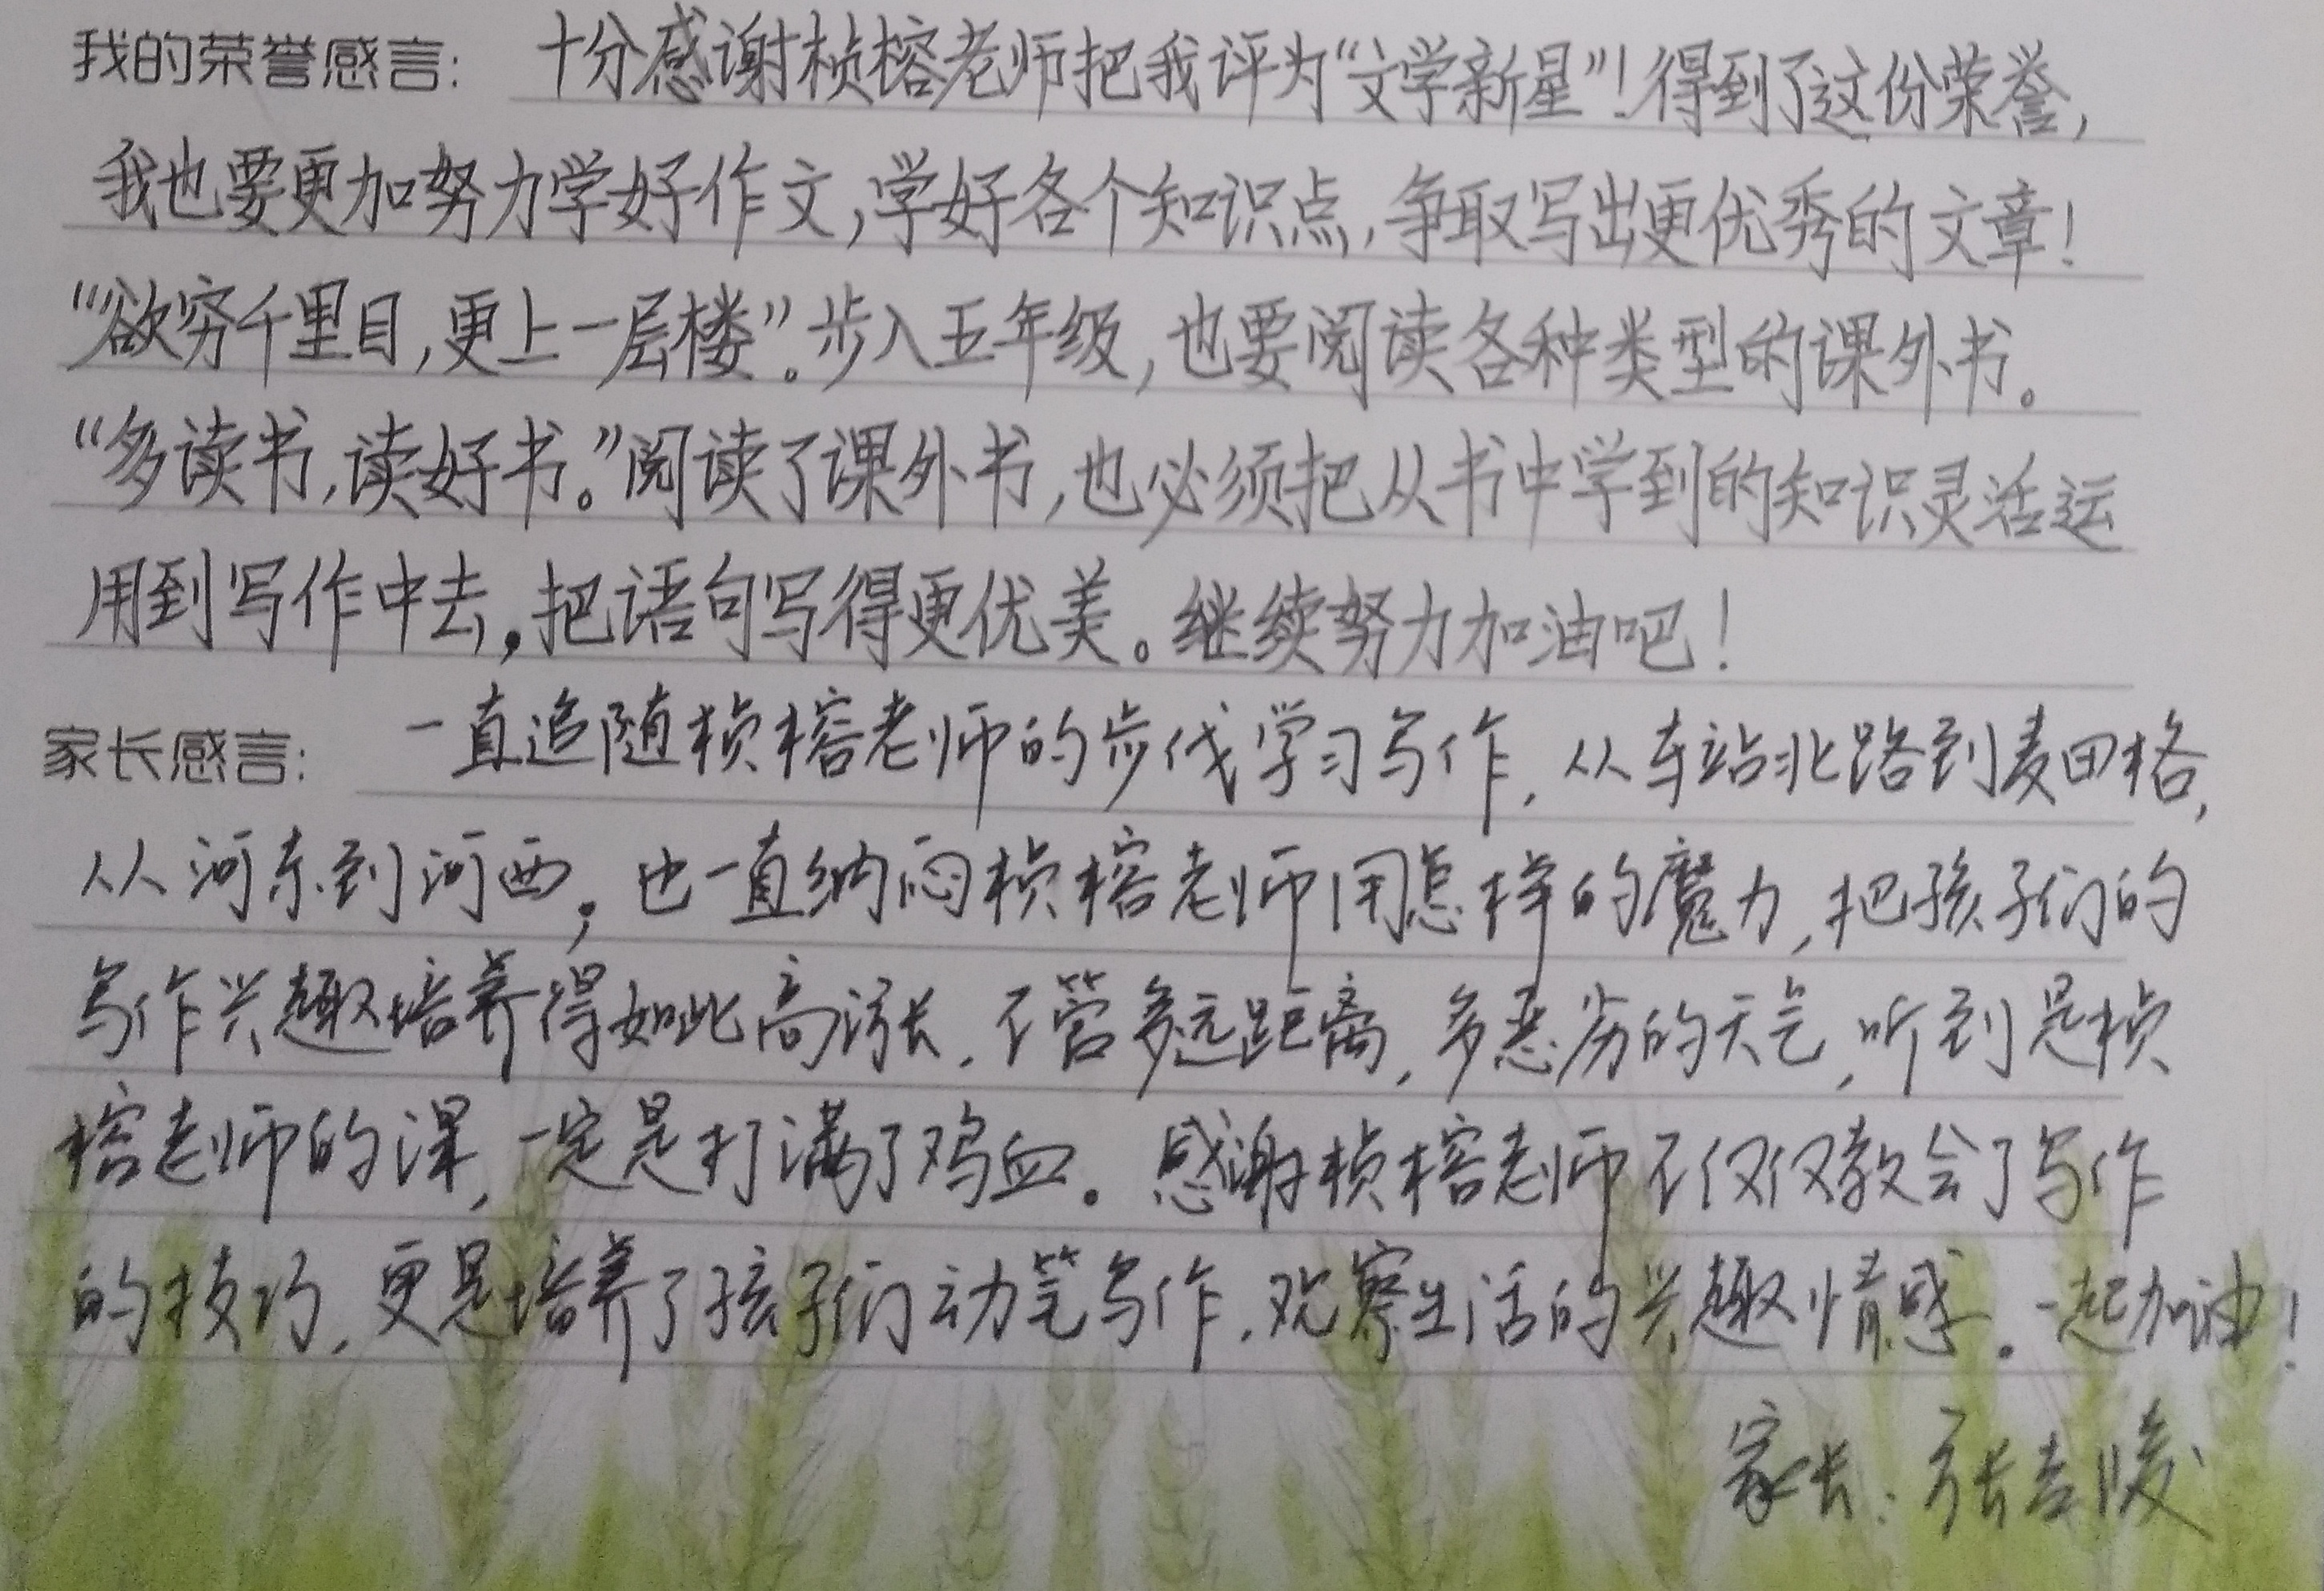 我的荣誉感言：十分感谢桢榕老师把我评为“文学新星”！得到了这份荣誉，
我也要更加努力学好作文，学好各个知识点，争取写出更优秀的文章！
“欲穷千里目，更上一层楼”。步入五年级，也要阅读各种类型的课外书。
“多读书，读好书。”阅读了课外书，也必须把从书中学到的知识灵活运
用到写作中去，把语句写得更优美。继续努力加油吧！
家长感言：一直追随桢榕老师的步伐学习写作，从车站北路到麦田格，
从河东到河西，也一直纳闷桢榕老师用怎样的魔力，把孩子们的
写作兴趣培养得如此高涨，不管多远距离，多恶劣的天气，听到是桢
榕老师的课，一定是打满了鸡血。感谢桢榕老师不仅仅教会了写作
的技巧，更是培养了孩子们动笔写作，观察生活的兴趣情感。一起加油！
家长：张